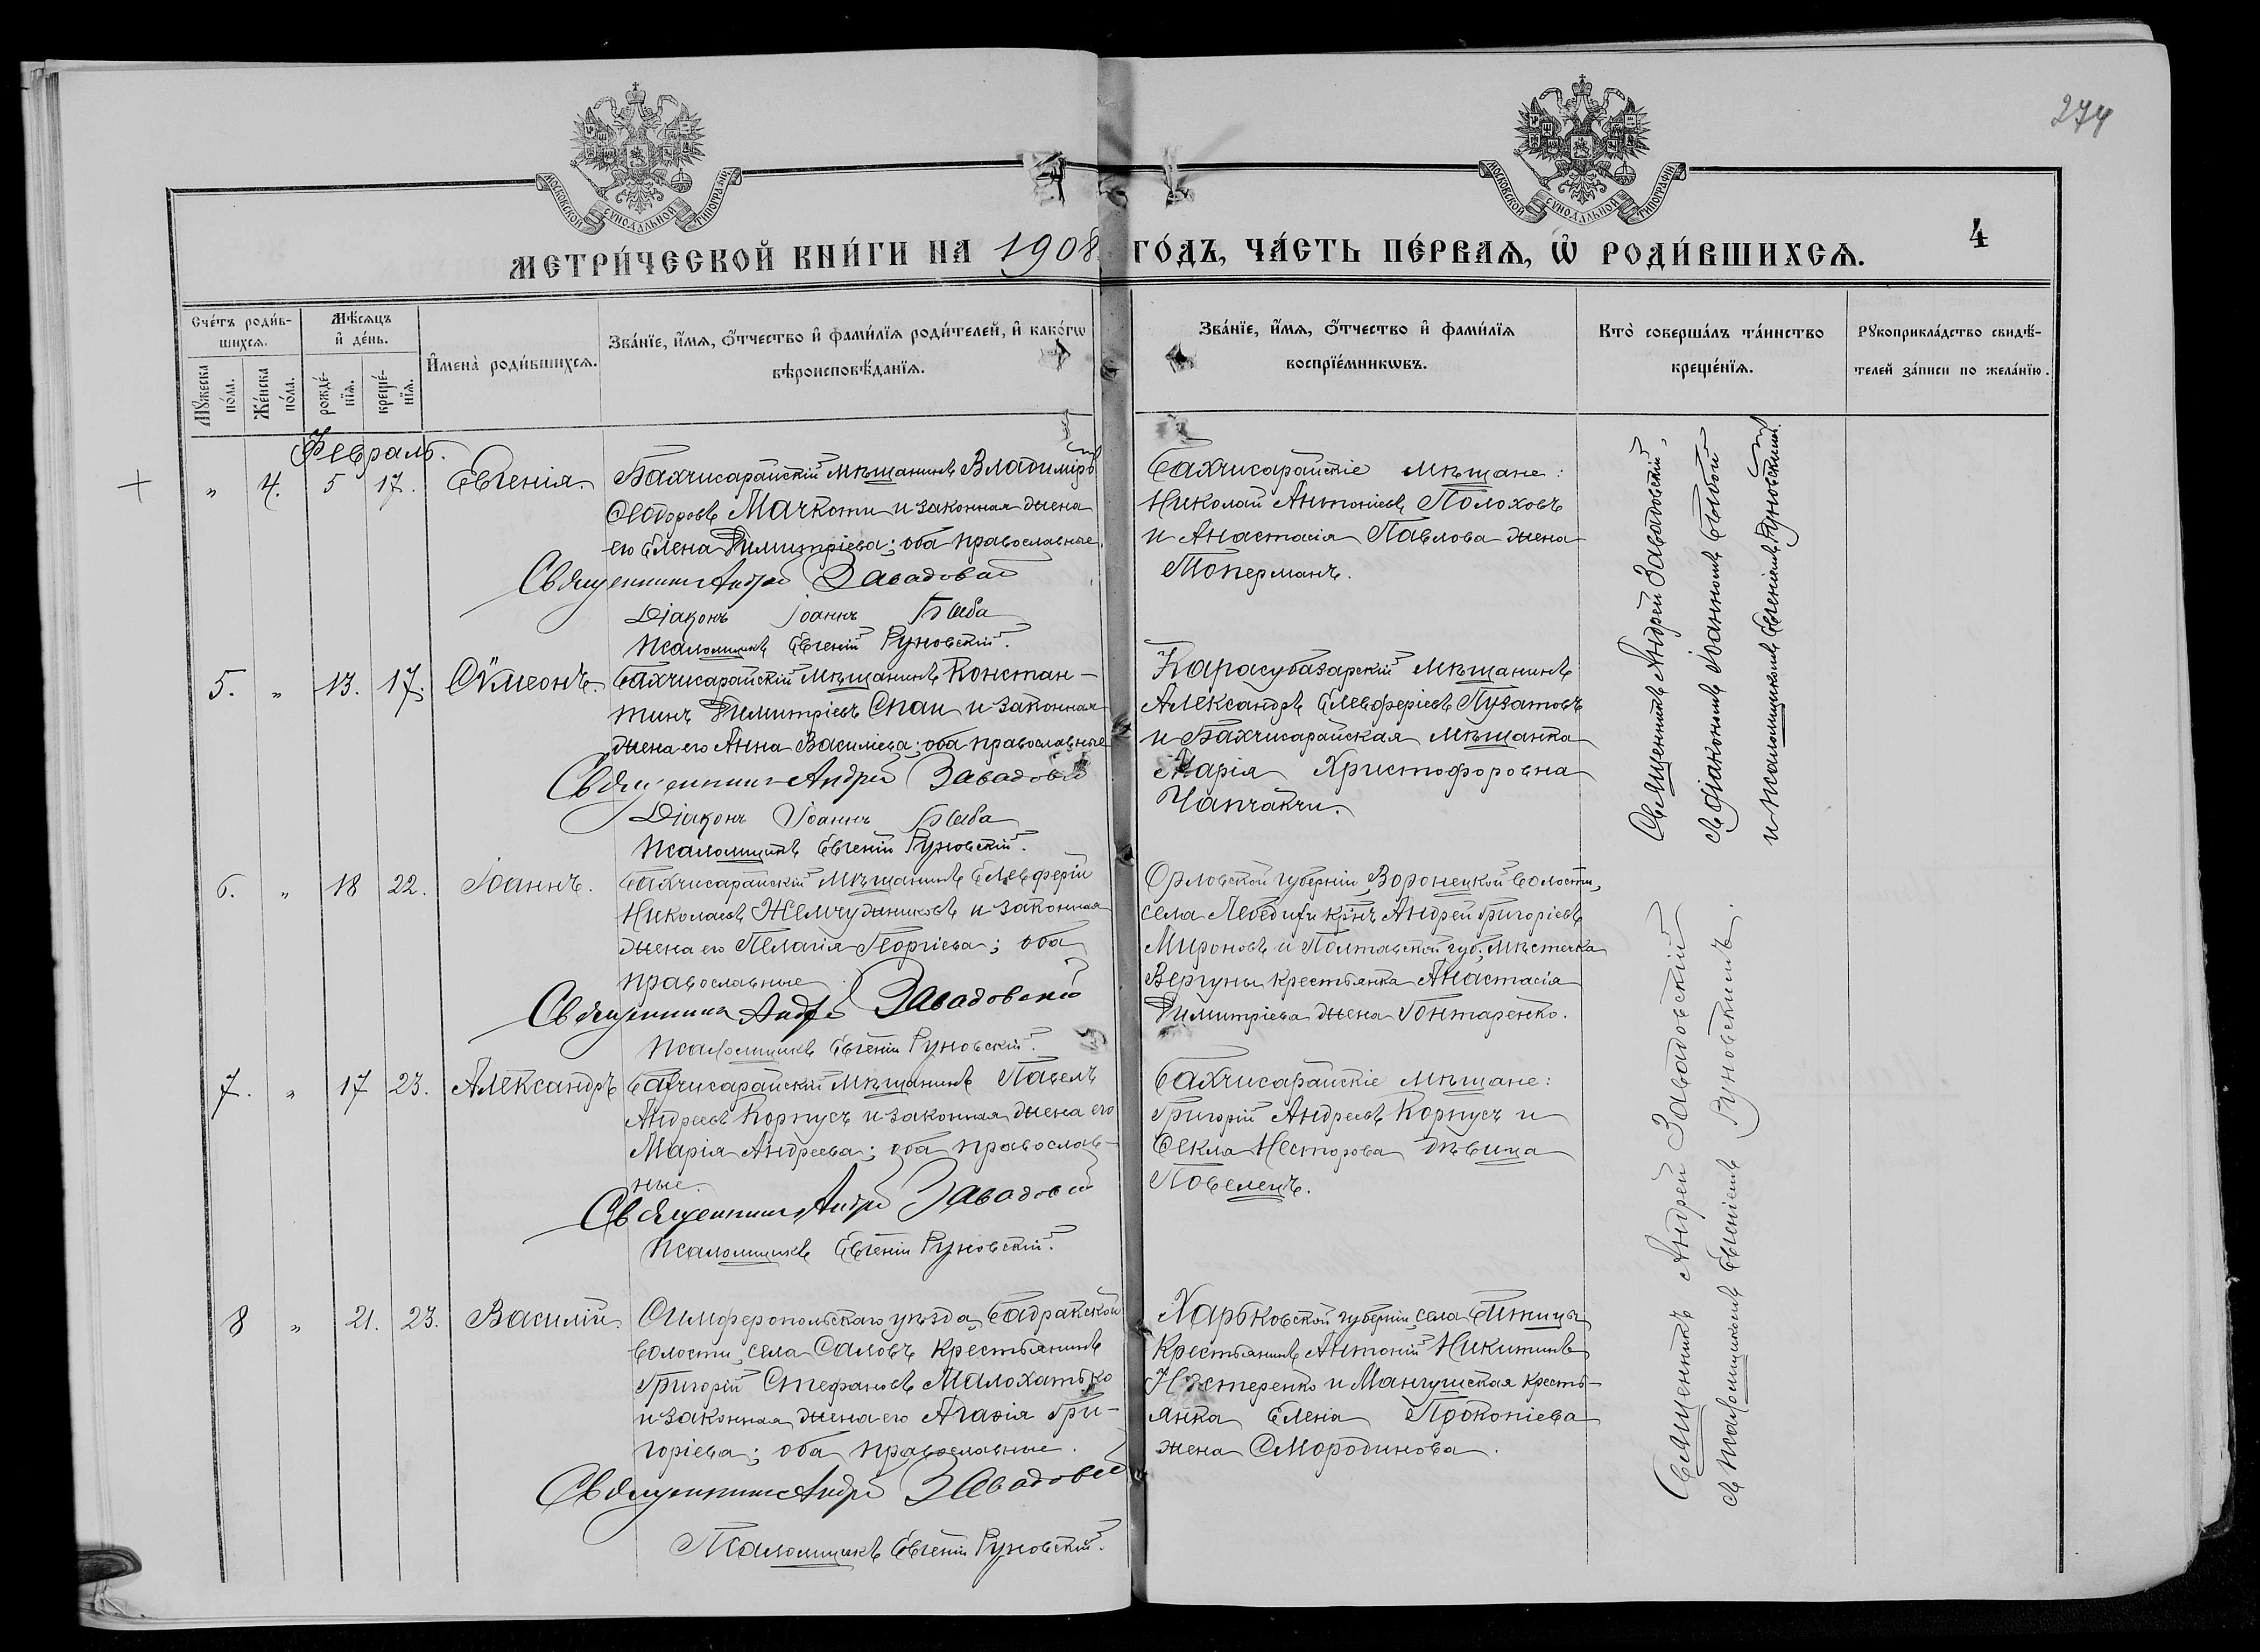 274
МОСКОВСКОЙ СУНОДАЛЬНОЙ ТИПОГРАФІИ
МОСКОВСКОЙ СУНОДАЛЬНОЙ ТИПОГРАФІИ
4
МЕТРИ́ЧЕСКОЙ КНИ́ГИ НА 1908 ГО́ДЪ, ЧА́СТЬ ПЕ́РВАѦ, Ѽ РОДИ́ВШИХСѦ.
Сче́тъ роди́в-
шихсѧ.
Мꙋ́жеска по́ла.
Же́нска по́ла.
Мѣ́сѧцъ
и҆ де́нь.
рожде́-
нїѧ.
креще́-
нїѧ.
И҆мена̀ роди́вшихсѧ.
Зва́нїе, и҆́мѧ, ѻ҆́тчество и҆ фами́лїѧ роди́телей, и҆ како́гѡ
вѣроисповѣ́данїѧ.
Зва́нїе, и҆́мѧ, ѻ҆́тчество и҆ фами́лїѧ
воспрїе́мникѡвъ.
Кто̀ соверша́лъ та́инство
креще́нїѧ.
Рꙋкоприкла́дство свидѣ́-
телей за́писи по жела́нїю.
Февраль.
+ " 4. 5 17. Евгенія.
Бахчисарайскій мѣщанинъ Владиміръ
Ѳеодоровъ Мачкоти и законная жена
его Елена Димитріева; оба православные.
Священникъ Андрей Завадовскій
Діаконъ Іоаннъ Быба
Псаломщикъ Евгеній Руновскій.
Бахчисарайскіе мѣщане:
Николай Антоніевъ Полоховъ
и Анастасія Павлова жена
Топерманъ.
5. " 13. 17. Сѷмеонъ.
Бахчисарайскій мѣщанинъ Констан-
тинъ Димитріевъ Спаи и законная
жена его Анна Василіева; оба православные
Священникъ Андрей Завадовскій
Діаконъ Іоаннъ Быба
Псаломщикъ Евгеній Руновскій.
Карасубазарскій мѣщанинъ
Александръ Елевферіевъ Пузатовъ
и Бахчисарайская мѣщанка
Марія Христофоровна
Чапчакчи.
Священникъ Андрей Завадовскій,
съ діакономъ Іоанномъ Быбой
и псаломщикомъ Евгеніемъ Руновскимъ.
6. " 18 22. Іоаннъ.
Бахчисарайскій мѣщанинъ Елевферій
Николаевъ Жемчужниковъ и законная
жена его Пелагія Георгіева; оба
православные
Священникъ Андрей Завадовскій
Псаломщикъ Евгеній Руновскій.
Орловской губерніи, Воронецкой волости,
села Лебедики кр-нъ Андрей Григоріевъ
Мироновъ и Полтавской губ., мѣстечка
Вергуны крестьянка Анастасія
Димитріева жена Гонтаренко.
7. " 17 23. Александръ
Бахчисарайскій мѣщанинъ Павелъ
Андреевъ Корпусъ и законная жена его
Марія Андреева; оба православ-
ные.
Священникъ Андрей Завадовскій
Псаломщикъ Евгеній Руновскій.
Бахчисарайскіе мѣщане:
Григорій Андреевъ Корпусъ и
Ѳекла Несторова дѣвица
Повелецъ.
8 " 21. 23. Василій.
Симферопольскаго уѣзда, Бадракской
волости, села Саловъ крестьянинъ
Григорій Стефановъ Малохатько
и законная жена его Агаѳія Гри-
горіева; оба православные.
Священникъ Андрей Завадовскій
Псаломщикъ Евгеній Руновскій.
Харьковской губерніи, села Битицы
крестьянинъ Антоній Никитинъ
Нестеренко и Мангушская кресть-
янка Елена Прокопіева
жена Смородинова.
Священникъ Андрей Завадовскій
съ псаломщикомъ Евгеніемъ Руновскимъ.